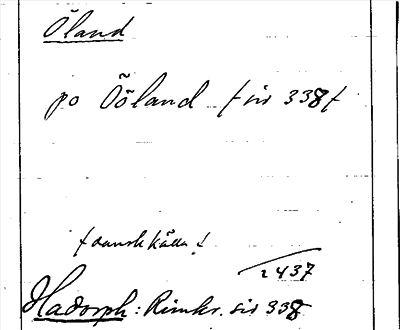 Öland
po Öõland /sid 338/
/dansk källa/
1437
Hadorph: Rimkr. sid 338